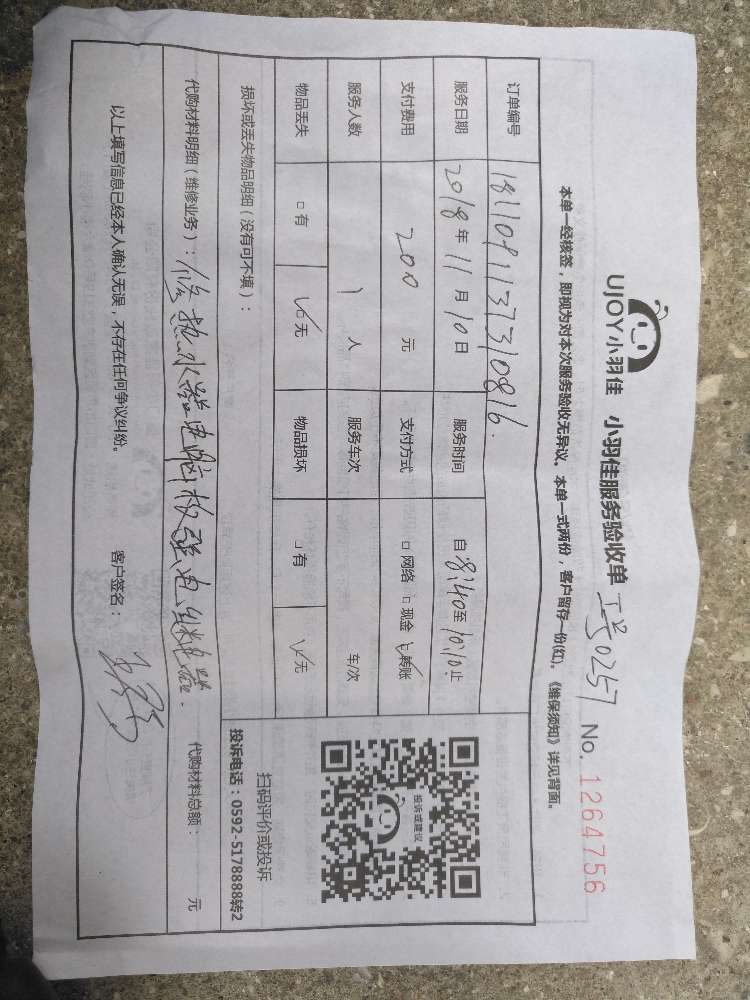 UJOY小羽佳 小羽佳服务验收单 工号0257 No. 1264756
本单一经核签，即视为对本次服务验收无异议。本单一式两份，客户留存一份(红)。《维保须知》详见背面。
订单编号 181109113730816.
服务日期 2018年11月10日 服务时间 自8:40至10:10止
支付费用 200 元 支付方式 □网络 □现金 ☑转账
服务人数 1 人 服务车次 车/次
物品丢失 □有 ☑无 物品损坏 □有 ☑无
损坏或丢失物品明细（没有可不填）：
投诉或建议
扫码评价或投诉
投诉电话：0592-5178888转2
代购材料明细（维修业务）：修热水器电脑板强电继电器. 代购材料总额： 元
以上填写信息已经本人确认无误，不存在任何争议纠纷。 客户签名：